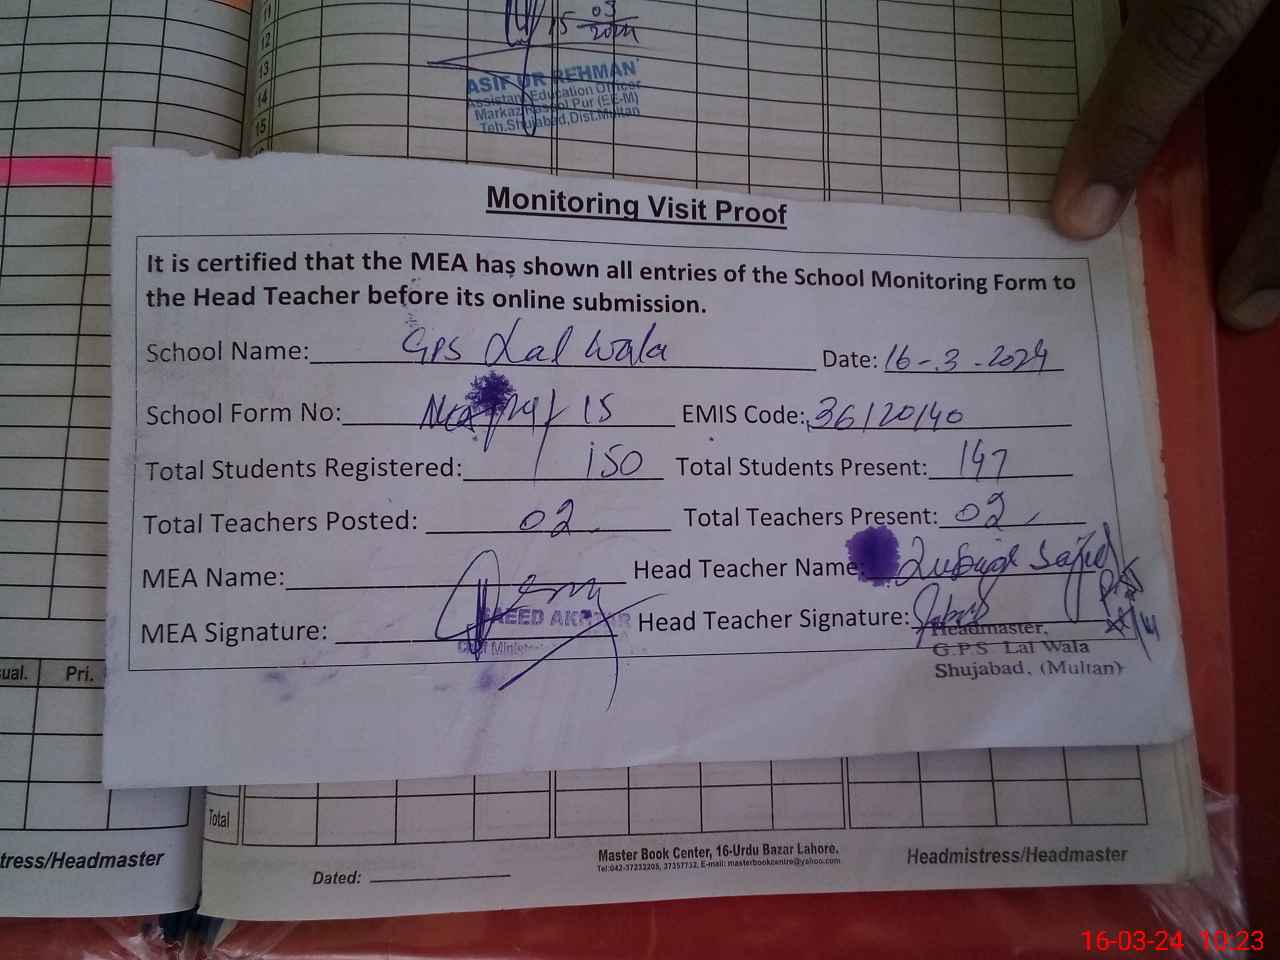 11
12
13
14
15
15-03
2024
ASIF UR REHMAN
Assistant Education Officer
Markaz Rasool Pur (EE-M)
Teh.Shujabad,Dist.Multan
Monitoring Visit Proof
It is certified that the MEA has shown all entries of the School Monitoring Form to
the Head Teacher before its online submission.
School Name: GPS Lal Wala Date: 16-3-2024
School Form No: 15 EMIS Code: 36120140
Total Students Registered: 150 Total Students Present: 147
Total Teachers Posted: 02 Total Teachers Present: 02
MEA Name: Head Teacher Name: Sajid
MEA Signature: SAEED Head Teacher Signature:
Headmaster,
G.P.S Lal Wala
Shujabad, (Multan)
ual. Pri.
Total
tress/Headmaster
Dated:
Master Book Center, 16-Urdu Bazar Lahore.
Tel:042-37232205, 37357732, E-mail: masterbookcentre@yahoo.com
Headmistress/Headmaster
16-03-24 10:23